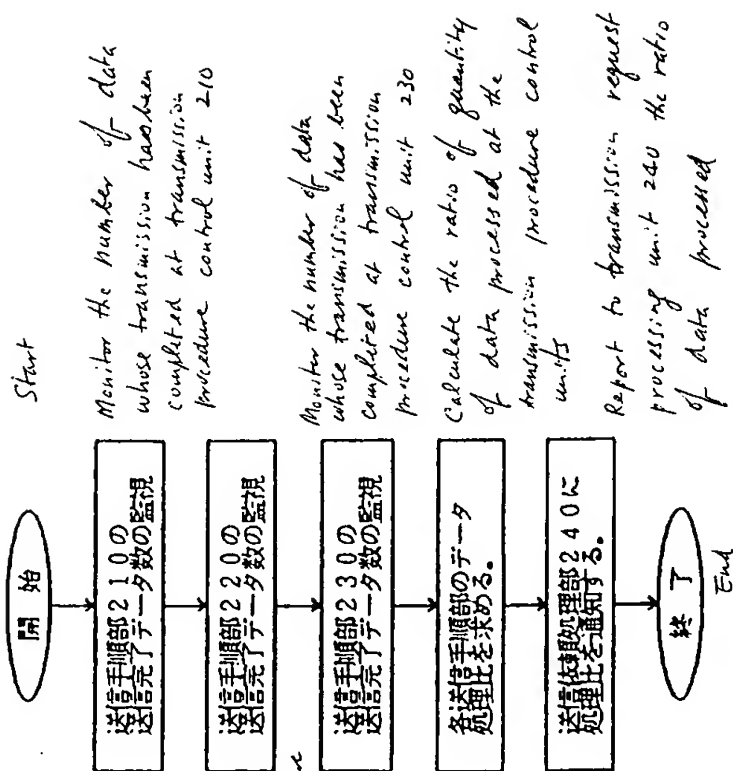 開始
Start
送信手順部210の
送信完了データ数の監視
Monitor the number of data
whose transmission has been
completed at transmission
procedure control unit 210
送信手順部220の
送信完了データ数の監視
送信手順部230の
送信完了データ数の監視
Monitor the number of data
whose transmission has been
completed at transmission
procedure control unit 230
各送信手順部のデータ
処理比を求める。
Calculate the ratio of quantity
of data processed at the
transmission procedure control
units
送信依頼処理部240に
処理比を通知する。
Report to transmission request
processing unit 240 the ratio
of data processed
終了
End